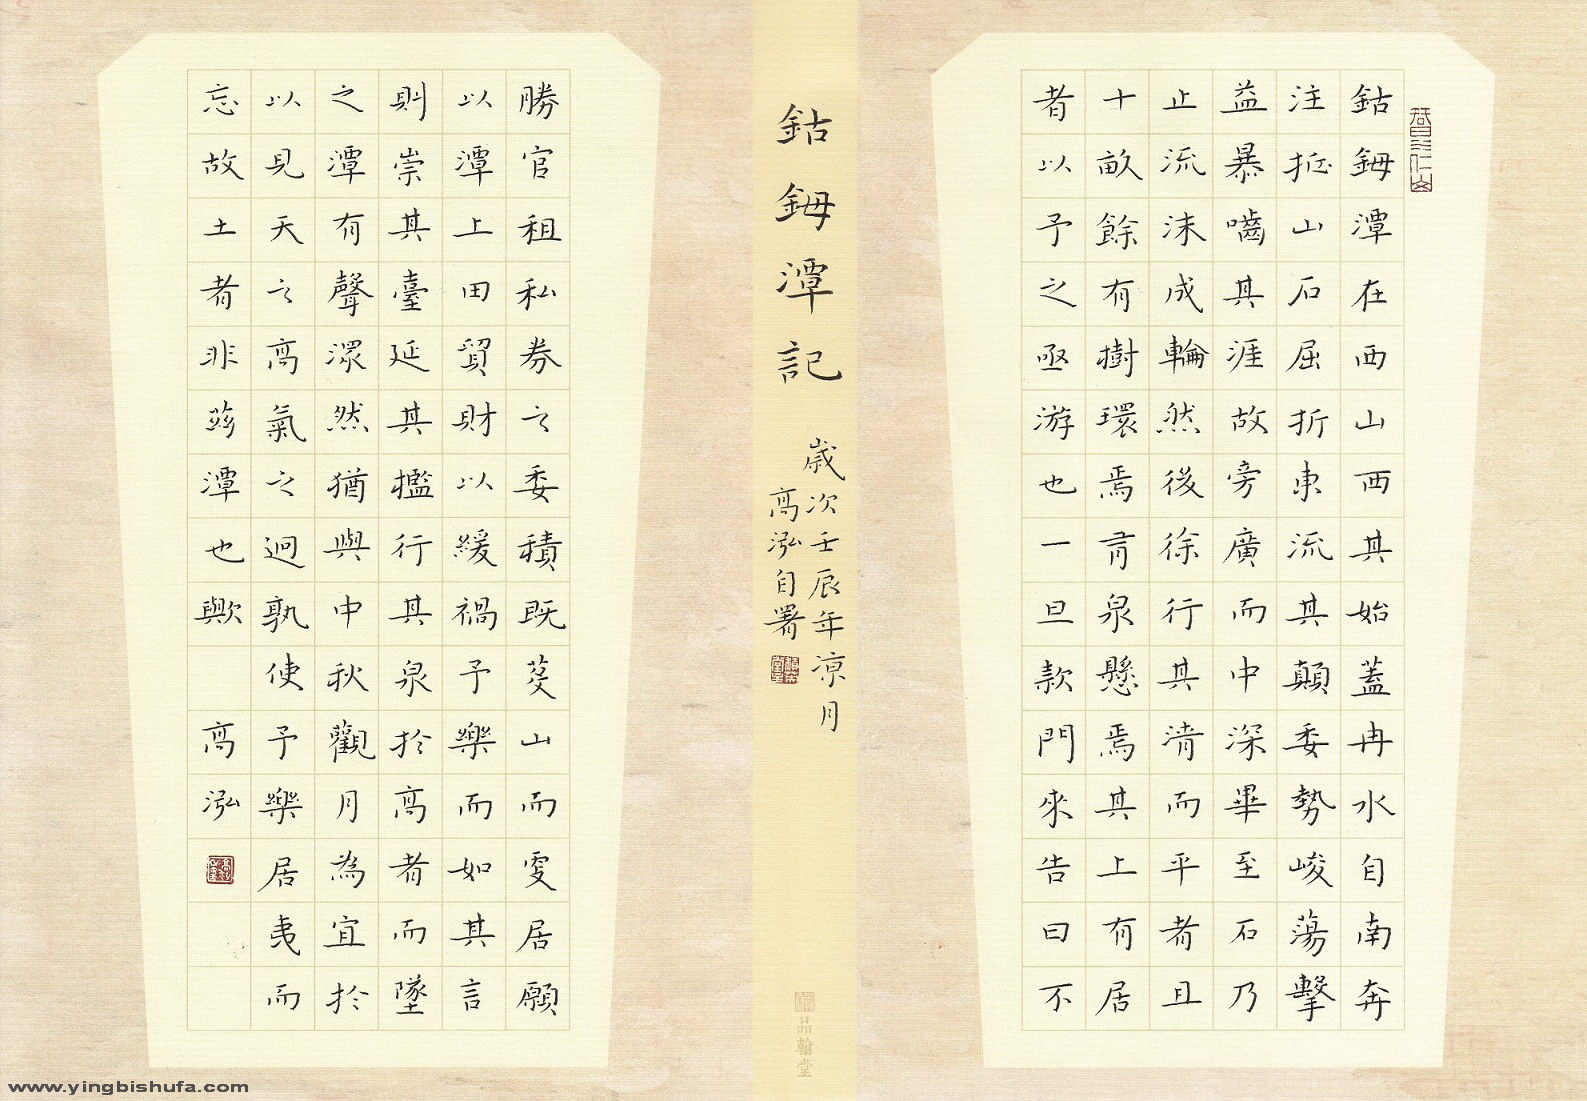 鈷鉧潭在西山西其始蓋冉水自南奔
注抵山石屈折東流其顛委勢峻蕩擊
益暴嚙其涯故旁廣而中深畢至石乃
止流沫成輪然後徐行其清而平者且
十畝餘有樹環焉有泉懸焉其上有居
者以予之亟游也一旦款門來告曰不
鈷鉧潭記
歲次壬辰年凉月
高泓自署
品翰堂
勝官租私券之委積既芟山而更居願
以潭上田貿財以緩禍予樂而如其言
則崇其臺延其檻行其泉於高者而墜
之潭有聲潀然猶與中秋觀月為宜於
以見天之高氣之迥孰使予樂居夷而
忘故土者非茲潭也歟 高泓
www.yingbishufa.com